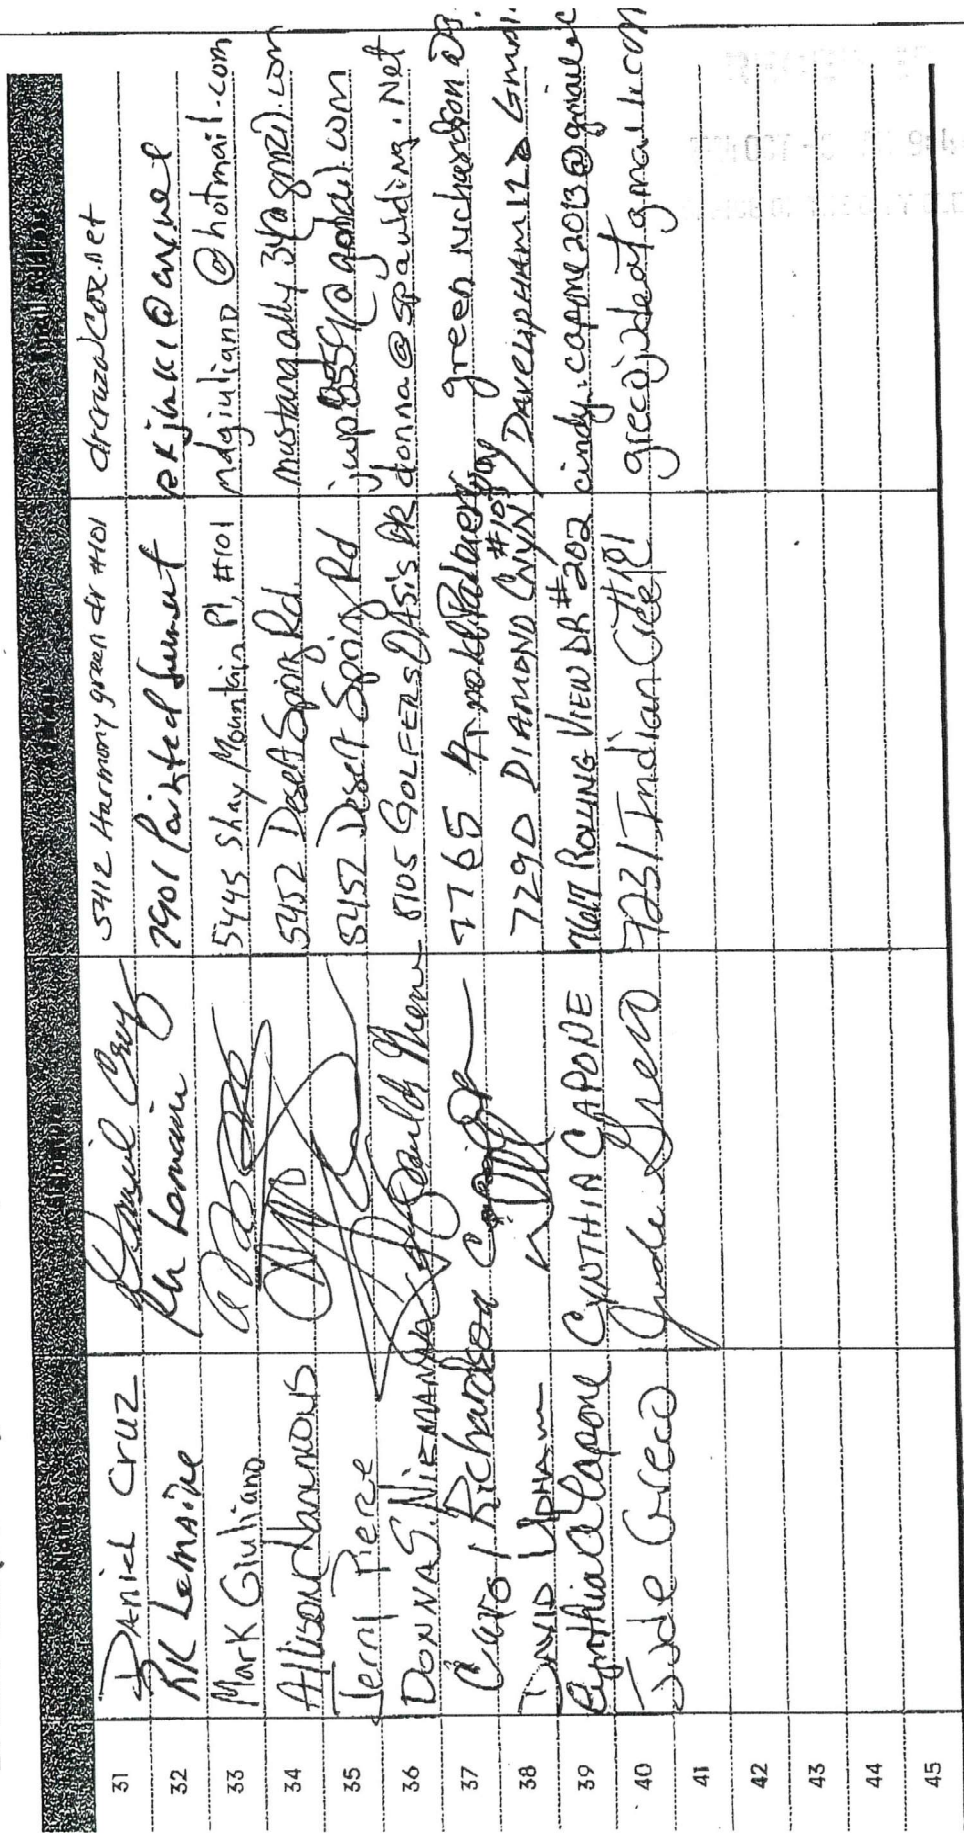 Name
31 Daniel Cruz Daniel Cruz 5412 Harmony green dr #101 drcruz@cox.net
32 RK Lemaire RK Lemaire 7901 Painted Summit
33 Mark Giuliano 5445 Shay Mountain Pl, #101 mdgiuliano@hotmail.com
34 Allison 5452 Desert Spring Rd. mustangally34@gmail.com
35 Terri Pierce 5452 Desert Spring Rd
36 DONNA S. NIEMANN 8105 GOLFERS OASIS DR donna@spaulding.Net
37 Carol Richardson 7765 green richardson
38 DAVID UPHAM 7290 DIAMOND CNYN #103 DAVEUPHAM12@Gmai
39 Cynthia Capone CYNTHIA CAPONE ROLLING VIEW DR #202 cindy.capone2013@gmail.c
40 Jude Greco Jude Greco 7231 Indian Creek grecojude at gmail.com
41
42
43
44
45